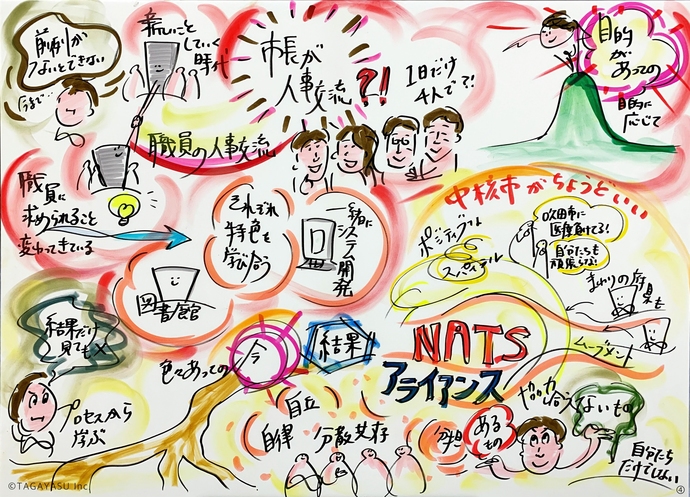 前例が
ないとできない
今まで…
新しいこと
していく
時代
市長が
人事交流?!
1日だけ
4人で?!
目的
があっての
目的に
応じて
職員の人事交流
職員に
求められること
変わってきている
それぞれ
特色を
学び合う
一緒に
システム開発
図書館
中核市がちょうどいい
ポジティブ
スパイラル
吹田市に
医療負けてる!
自分たちも
頑張らな!
まわりの
ムーブメント
結果だけ
見ても×
プロセスから
学ぶ
色々あっての
今
結果
NATS
アライアンス
自立
自律
分散共存
あるもの
ないもの
自分たち
だけでしない
©TAGAYASU Inc.
④